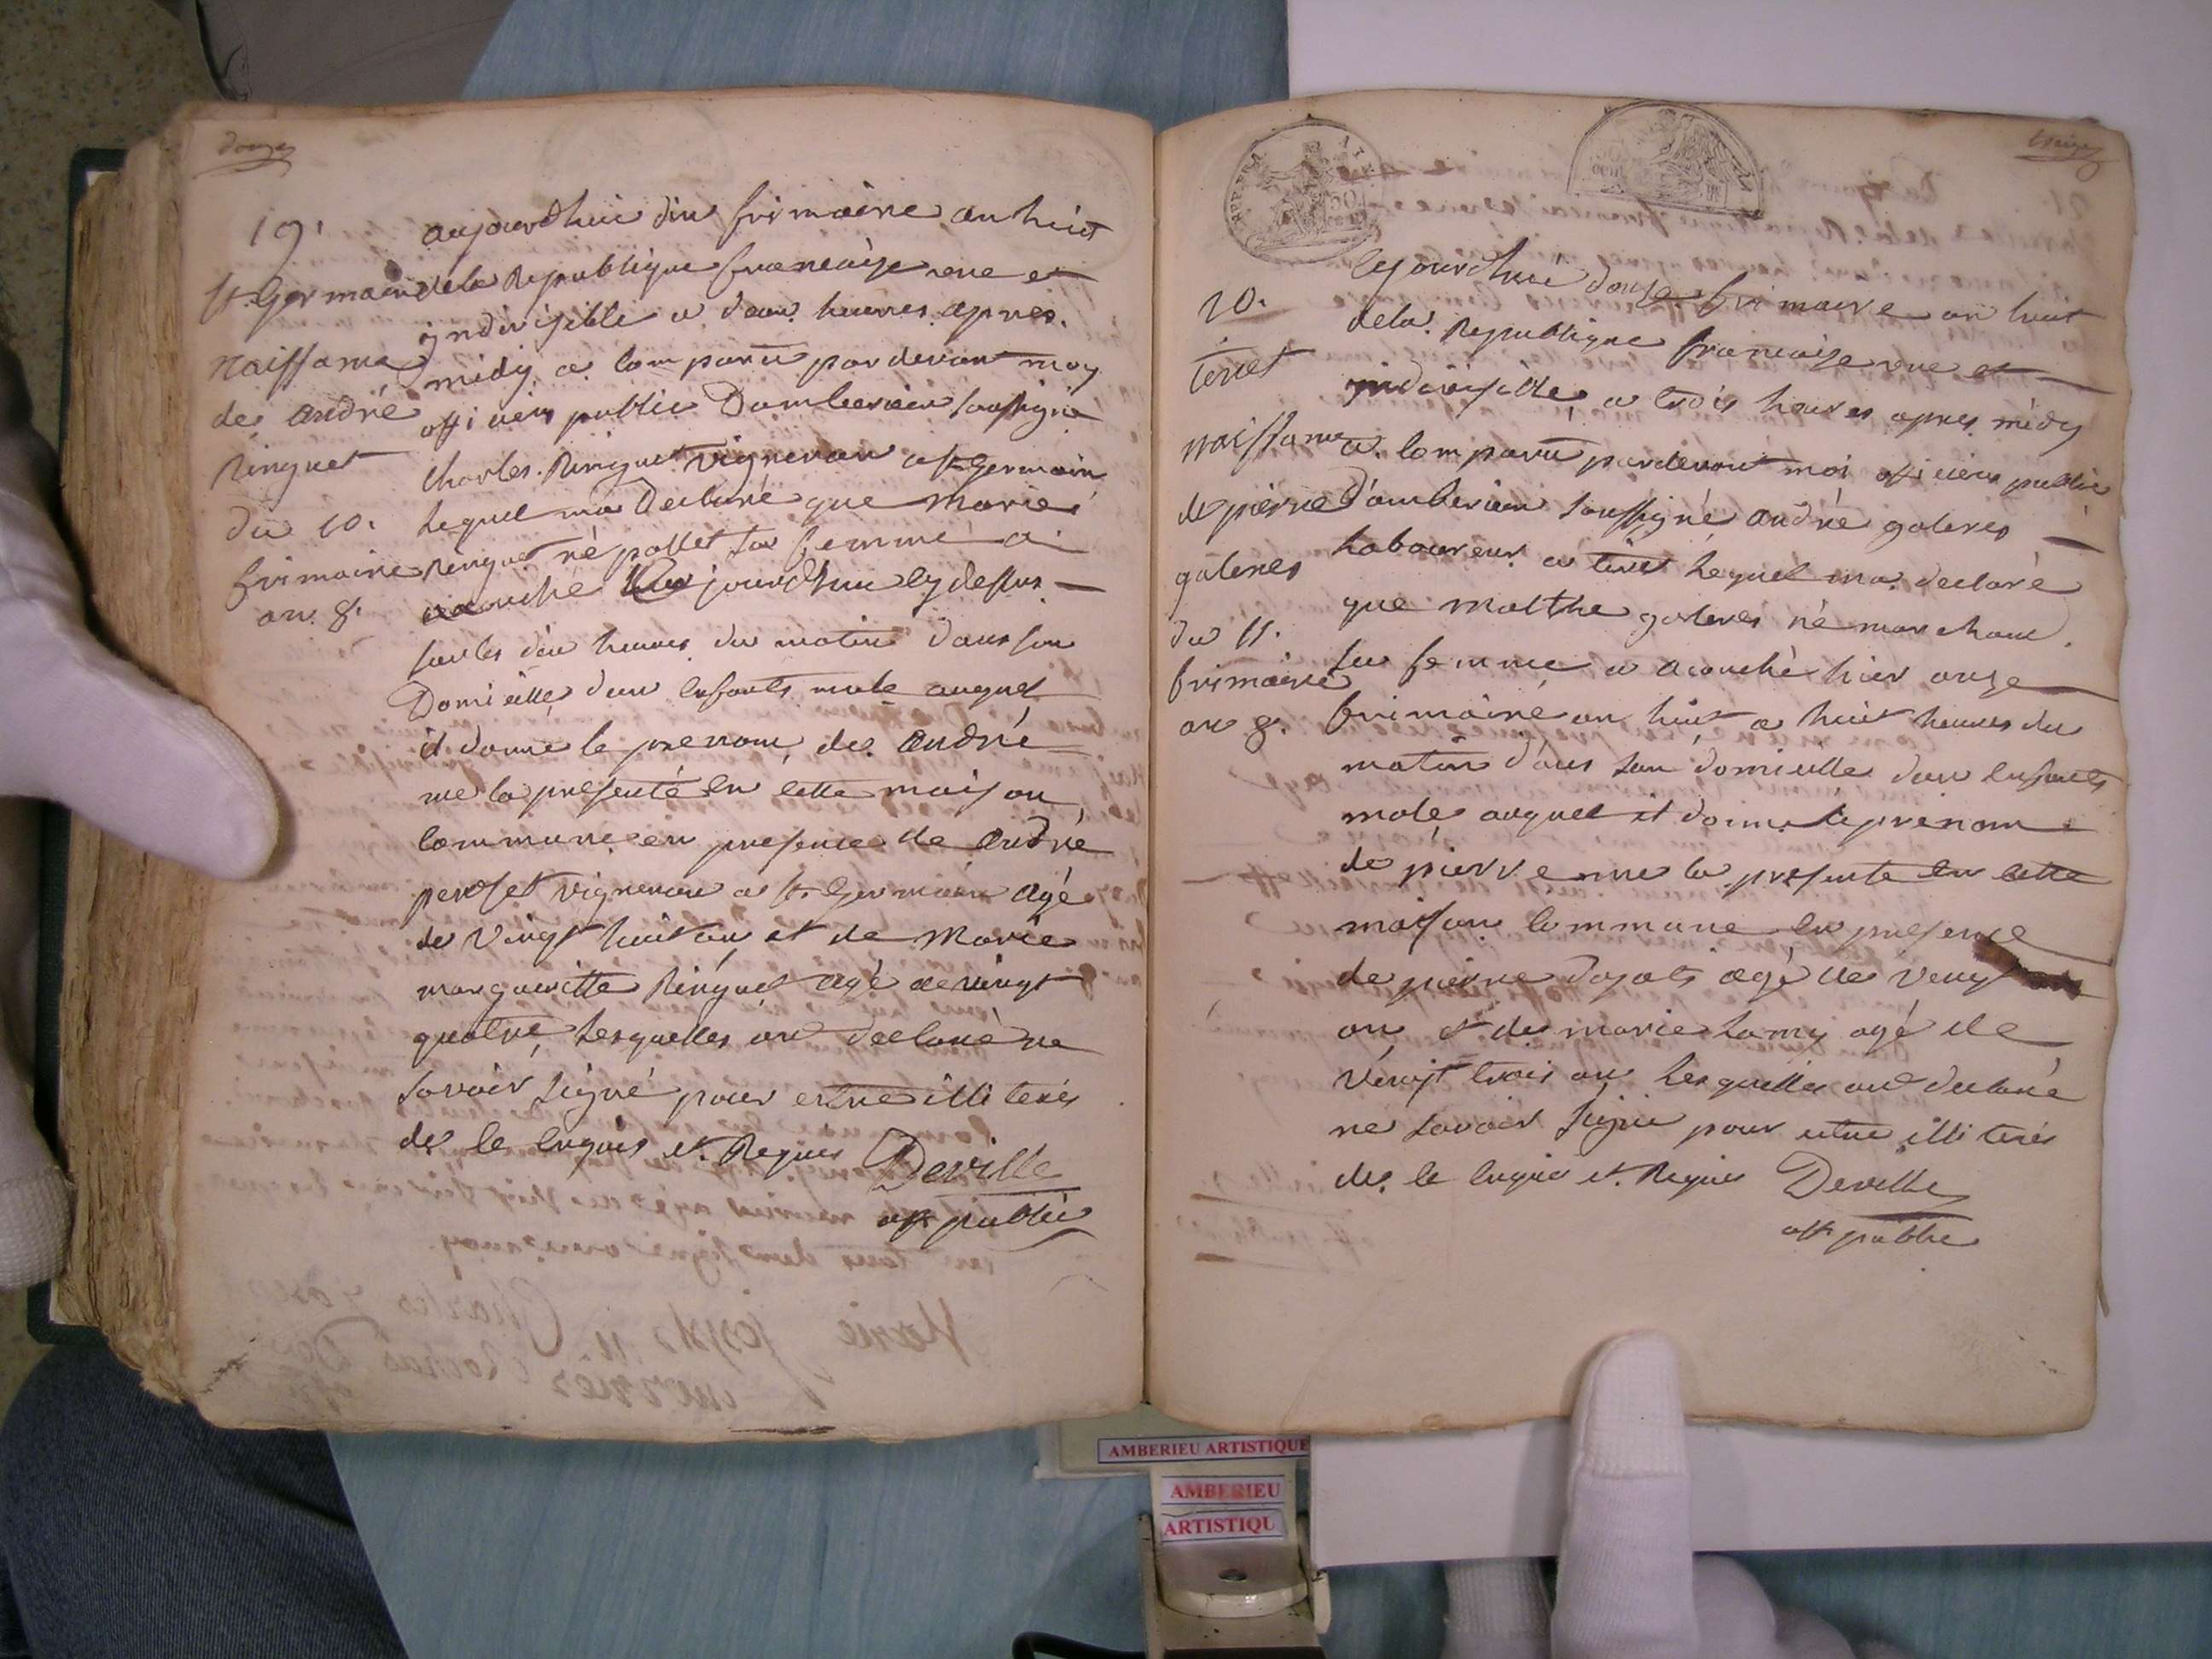 douze
19.
St. Germain
Naissance
de André
Ringuet
du 10.
frimaire
an. 8.
aujourdhui dix frimaire an huit
dela Republique francaise une et
indivisible a deux heures apres.
midy a comparu par devant moy
officier public Damberieu soussigné
Charles Ringuet vigneron a St Germain
Lequel ma Declaré que Marie
Ringuet né pollet sa femme a
acouché aujourdhui cy dessus
sur les dix heures du matin dans son
Domicille dun enfants male auquel
il donne le prenom de André
me la presenté en cette maison
commune en presence de André
peroset vigneron a St. Germain agé
de vingt huit an et de Marie
margueritte Ringuet agé de vingt
quatre Lesquelles on declaré ne
savoir signé pour estre illi terés
de ce enquis et. Requis Deville
off public
treize
20.
tiret
Naissance
de pierre
galeres
du 11.
frimaire
an 8.
Cejourdhui douze frimaire an huit
dela Republique francaise une et
indivisible a trois heures apres midy
a comparu pardevant moi officier public
D'amberieu soussigné André galeres
Laboureur a tiret Lequel ma declaré
que Malthe galeres né marchand
sa femme a acouché hier onze
frimaire an huit a huit heures du
matin dans son domicille dun enfants
male auquel il donne le prenom
de pierre me la presenté en cette
maison commune en presence
de pierre agé de vingt
an et de marie Lamy agé de
vingt trois an Lesquelles ont declaré
ne savoir signé pour estre illi terés
de ce enquis et. Requis Deville
off public
REP. FRA
50
AMBERIEU ARTISTIQUE
AMBERIEU
ARTISTIQU